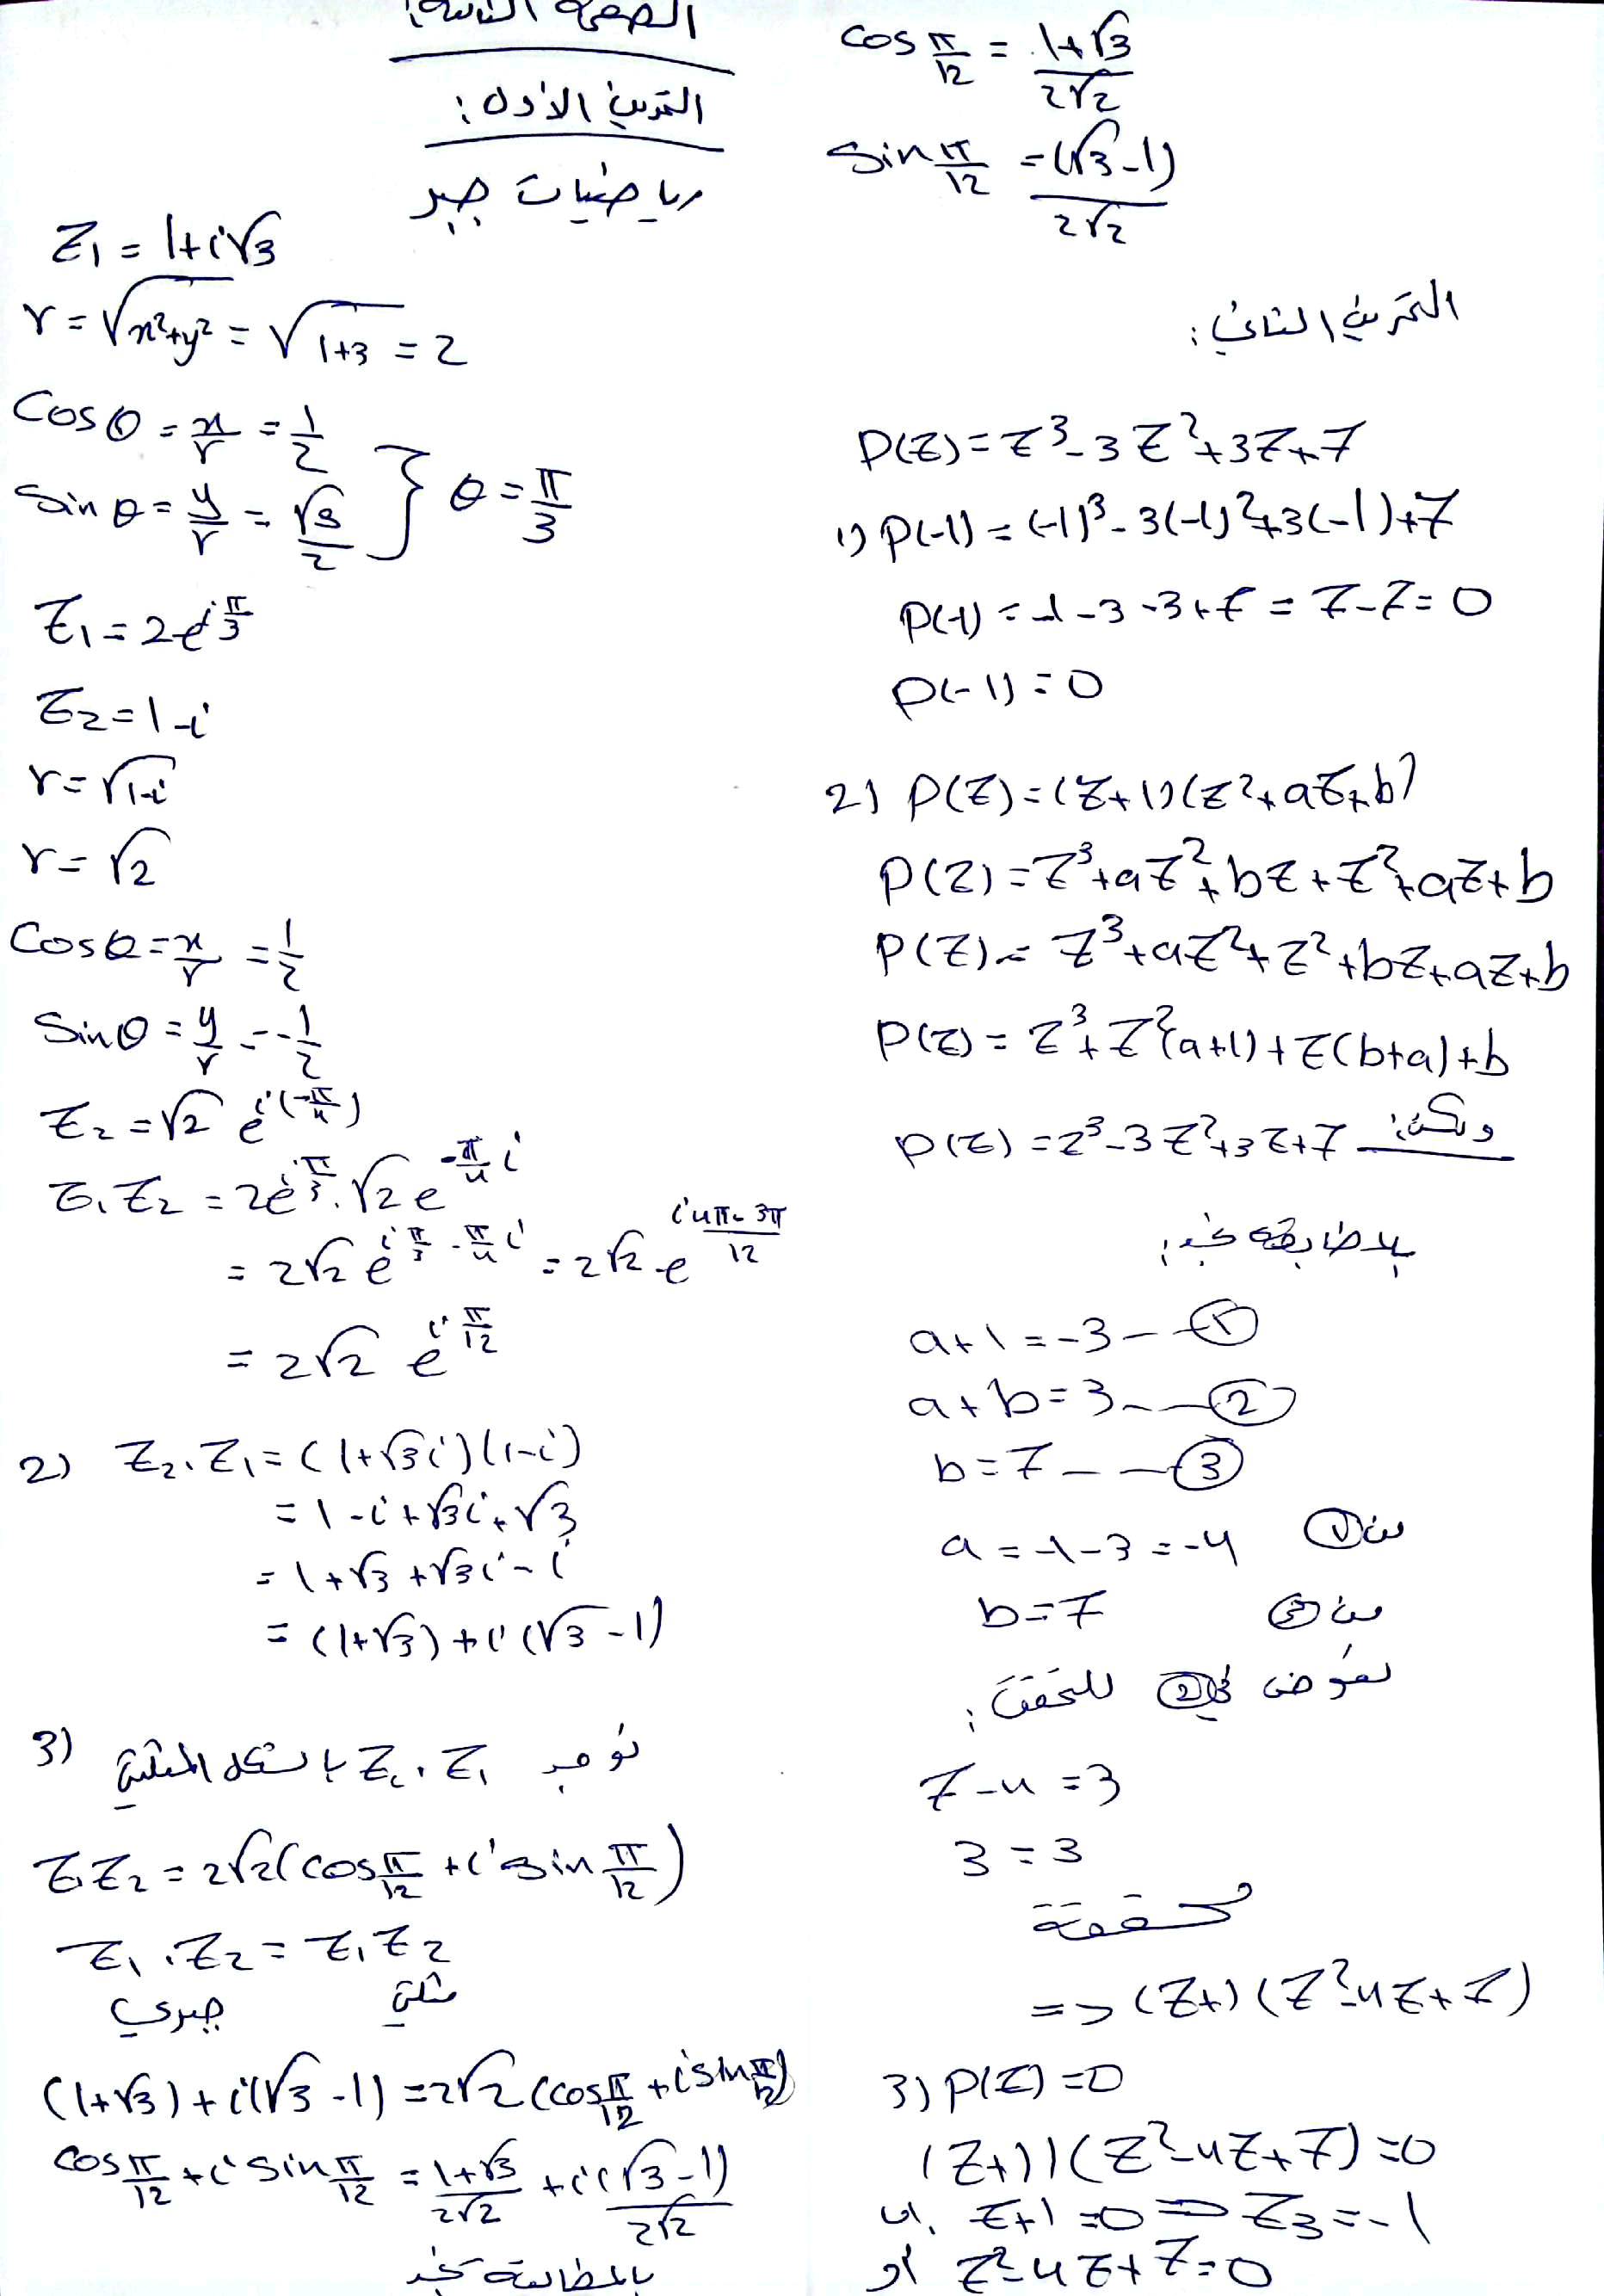 الصفحة الثالثة:
التمرين الأول:
رياضيات جبر
Z₁ = 1+i√3
r = √x²+y² = √1+3 = 2
Cosθ = x/r = 1/2
Sinθ = y/r = √3/2 } θ = π/3
Z₁ = 2e^(iπ/3)
Z₂ = 1-i
r = √1-i
r = √2
Cosθ = x/r = 1/2
Sinθ = y/r = -1/2
Z₂ = √2 e^(i(-π/4))
Z₁Z₂ = 2e^(iπ/3) . √2 e^(-π/4 i)
= 2√2 e^(iπ/3 - π/4 i) = 2√2 e^(i(4π-3π)/12)
= 2√2 e^(iπ/12)
2) Z₂.Z₁ = (1+√3i)(1-i)
= 1-i+√3i+√3
= 1+√3+√3i-i
= (1+√3)+i(√3-1)
3) نوجد Z₁.Z₂ بالشكل المثلثي
Z₁Z₂ = 2√2(cos π/12 + i sin π/12)
Z₁.Z₂ = Z₁Z₂
جبري مثلثي
(1+√3)+i(√3-1) = 2√2(cos π/12 + i sin π/12)
Cos π/12 + i sin π/12 = 1+√3/2√2 + i(√3-1)/2√2
بالمطابقة نجد
cos π/12 = 1+√3/2√2
sin π/12 = (√3-1)/2√2
التمرين الثاني:
P(Z) = Z³-3Z²+3Z+7
1) P(-1) = (-1)³-3(-1)²+3(-1)+7
P(-1) = -1-3-3+7 = 7-7=0
P(-1) = 0
2) P(Z) = (Z+1)(Z²+aZ+b)
P(Z) = Z³+aZ²+bZ+Z²+aZ+b
P(Z) = Z³+aZ²+Z²+bZ+aZ+b
P(Z) = Z³+Z²(a+1)+Z(b+a)+b
ولكن: P(Z) = Z³-3Z²+3Z+7
بالمطابقة نجد:
a+1 = -3 -- ①
a+b = 3 -- ②
b = 7 -- ③
من ① a = -1-3 = -4
من ③ b = 7
نعوض في ② للتحقق:
7-4 = 3
3 = 3
محققة
=> (Z+1)(Z²-4Z+7)
3) P(Z) = 0
(Z+1)(Z²-4Z+7) = 0
إما Z+1 = 0 => Z₃ = -1
أو Z²-4Z+7=0